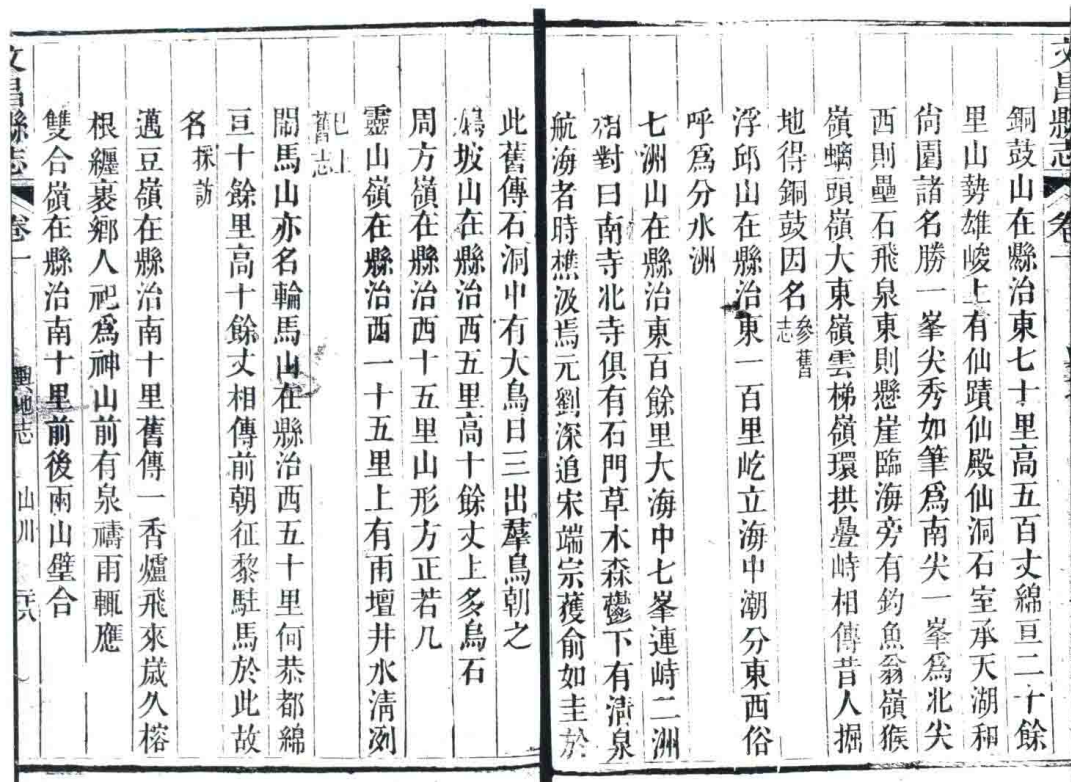 文昌縣志
卷一
銅鼓山在縣治東七十里高五百丈綿亘二十餘
里山勢雄峻上有仙蹟仙殿仙洞石室承天湖和
尙圍諸名勝一峯尖秀如筆爲南尖一峯爲北尖
西則壘石飛泉東則懸崖臨海旁有釣魚翁嶺猴
嶺螭頭嶺大東嶺雲梯嶺環拱疊峙相傳昔人掘
地得銅鼓因名參舊志
浮邱山在縣治東一百里屹立海中潮分東西俗
呼爲分水洲
七洲山在縣治東百餘里大海中七峯連峙二洲
相對曰南寺北寺俱有石門草木森鬱下有淸泉
航海者時樵汲焉元劉深追宋端宗獲俞如圭於
此舊傳石洞中有大鳥日三出羣鳥朝之
坡山在縣治西五里高十餘丈上多烏石
周方嶺在縣治西十五里山形方正若几
靈山嶺在縣治西一十五里上有雨壇井水淸冽
已上舊志
鬧馬山亦名輪馬山在縣治西五十里何恭都綿
亘十餘里高十餘丈相傳前朝征黎駐馬於此故
名採訪
邁豆嶺在縣治南十里舊傳一香爐飛來歲久榕
根纏裹鄕人祀爲神山前有泉禱雨輒應
雙合嶺在縣治南十里前後兩山壁合
文昌縣志
卷一
輿地志
山川